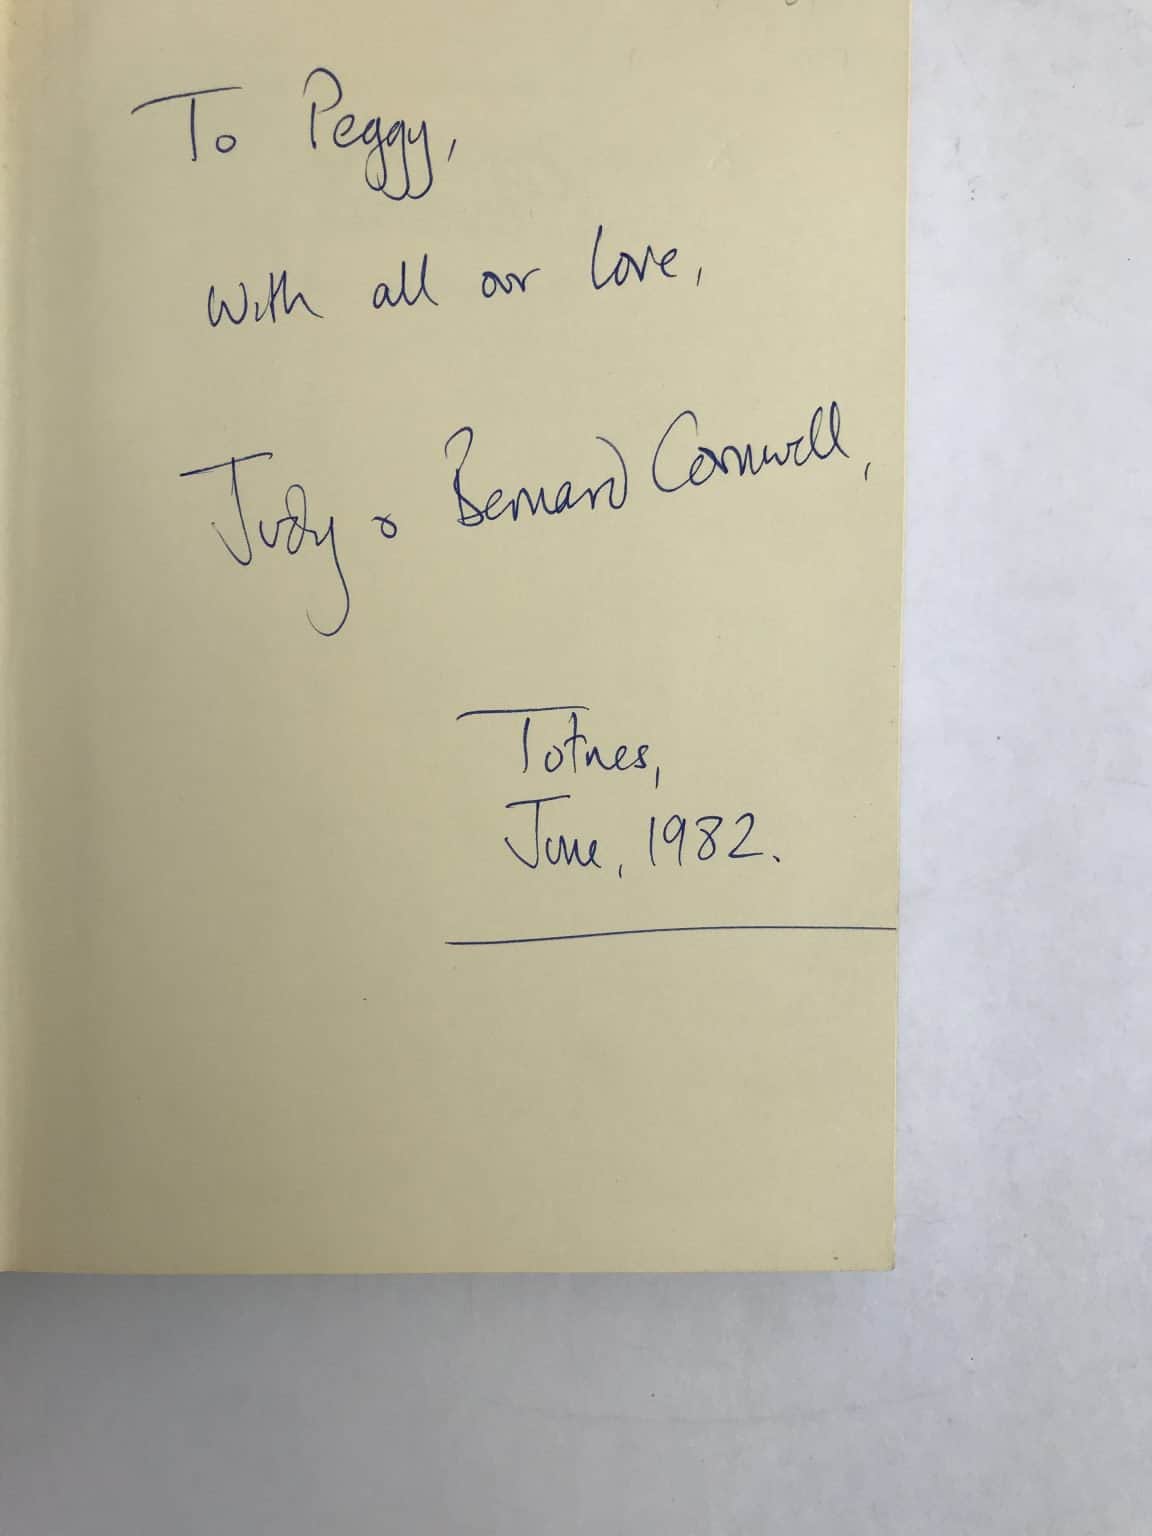 To Peggy,
with all our love,
Judy & Bernard Cornwell,
Totnes,
June, 1982.